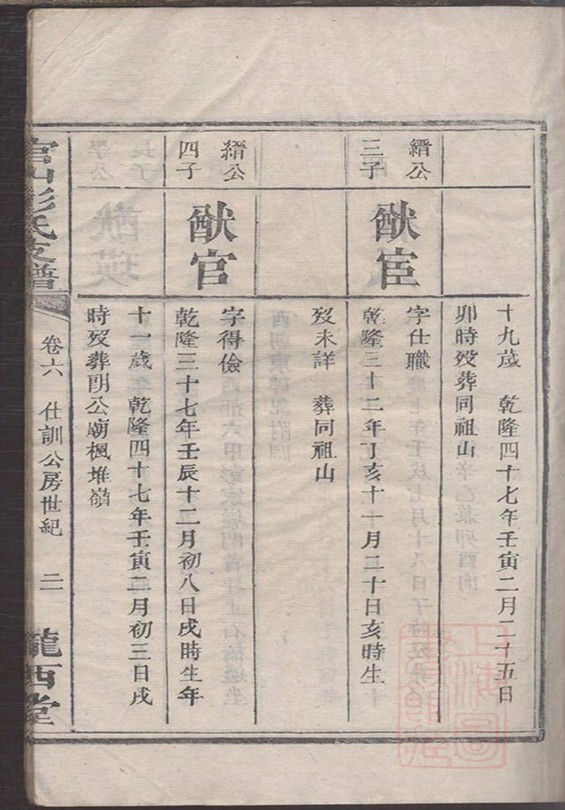 十九歲　乾隆四十七年壬寅二月二十五日
卯時歿葬同祖山
縉公
三子
猷宦
字仕職
乾隆三十二年丁亥十一月二十日亥時生
歿未詳　葬同祖山
縉公
四子
猷官
字得儉
乾隆三十七年壬辰十二月初八日戌時生年
十一歲　乾隆四十七年壬寅二月初三日戌
時歿葬明公廟楓堆嶺
官山彭氏支譜
卷六　仕訓公房世紀　二
隴西堂